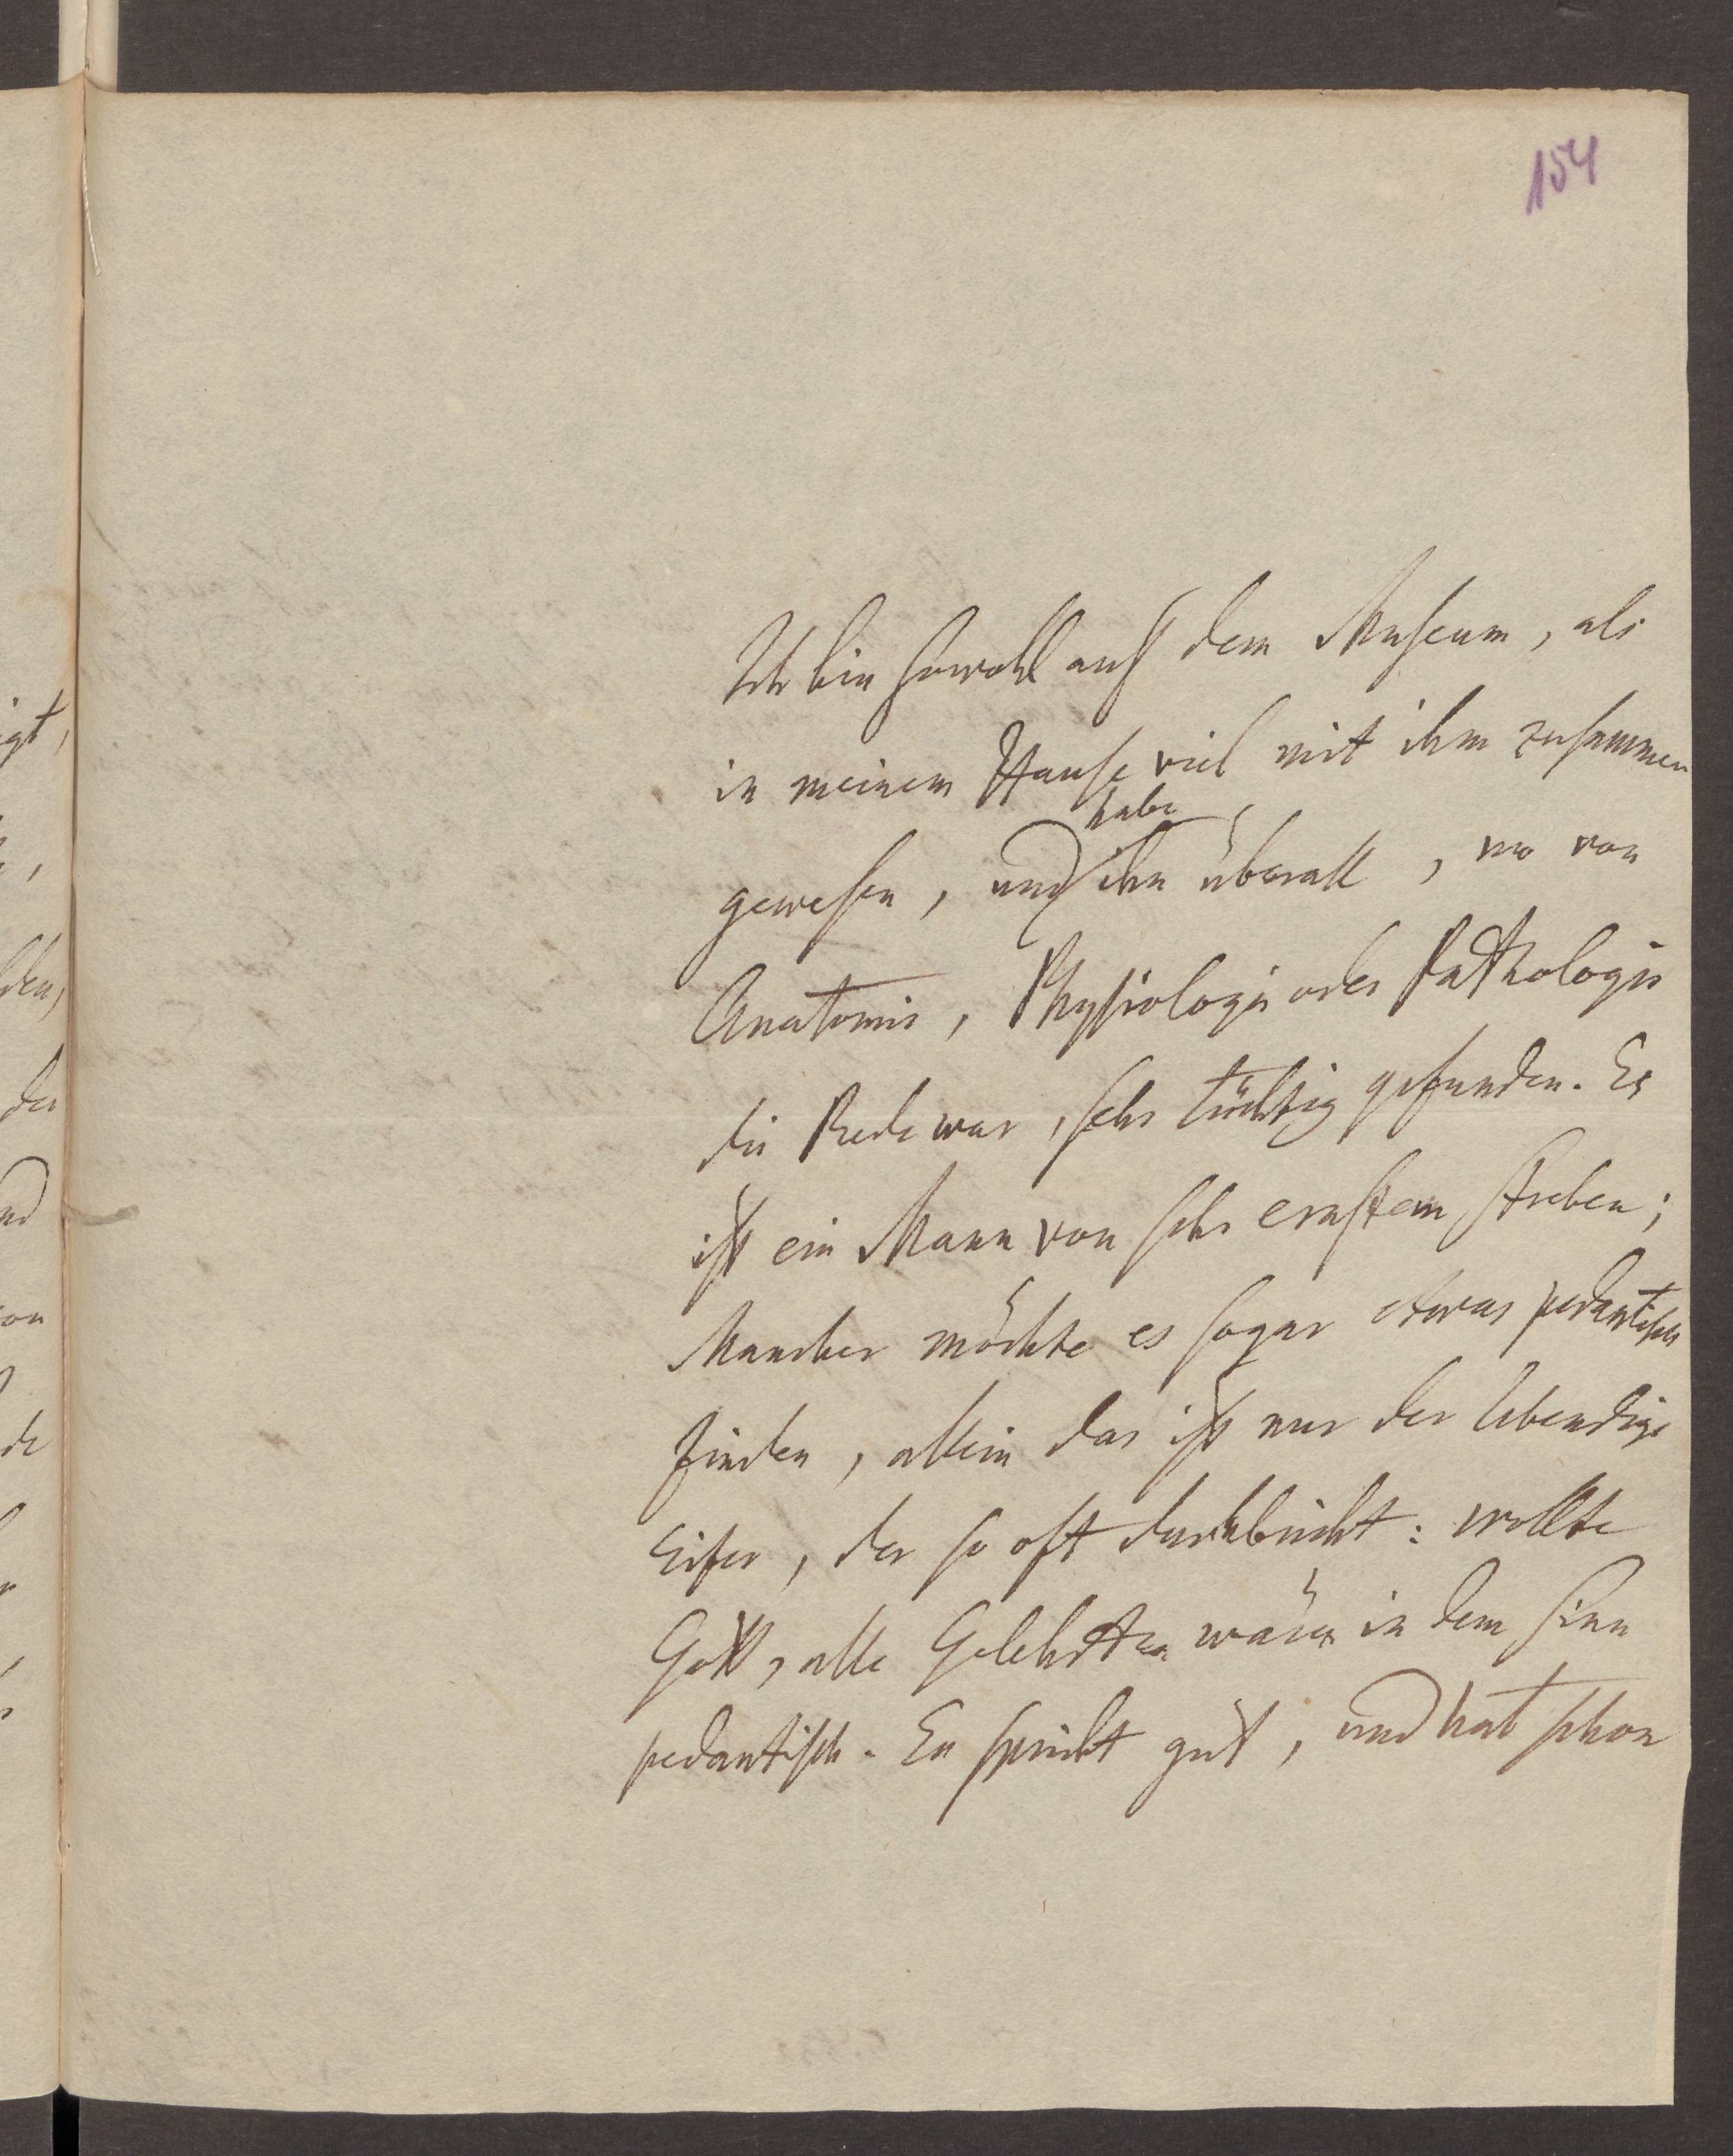 154
Ich bin sowohl auf dem Museum, als
in meinem Hause viel mit ihm zusammen
habe
gewesen, und ihn überall, wo von
Anatomie, Physiologie oder Pathologie
die Rede war, sehr tüchtig gefunden. Er
ist ein Mann von sehr ernstem Streben;
Mancher möchte es sogar etwas pedantisch
finden, allein das ist nur der lebendige
Eifer, der so oft durchbricht: wollte
Gott, alle Gelehrten wären in dem Sinn
pedantisch. Er spricht gut, und hat schon
igt,
den,
der
nd
on
de